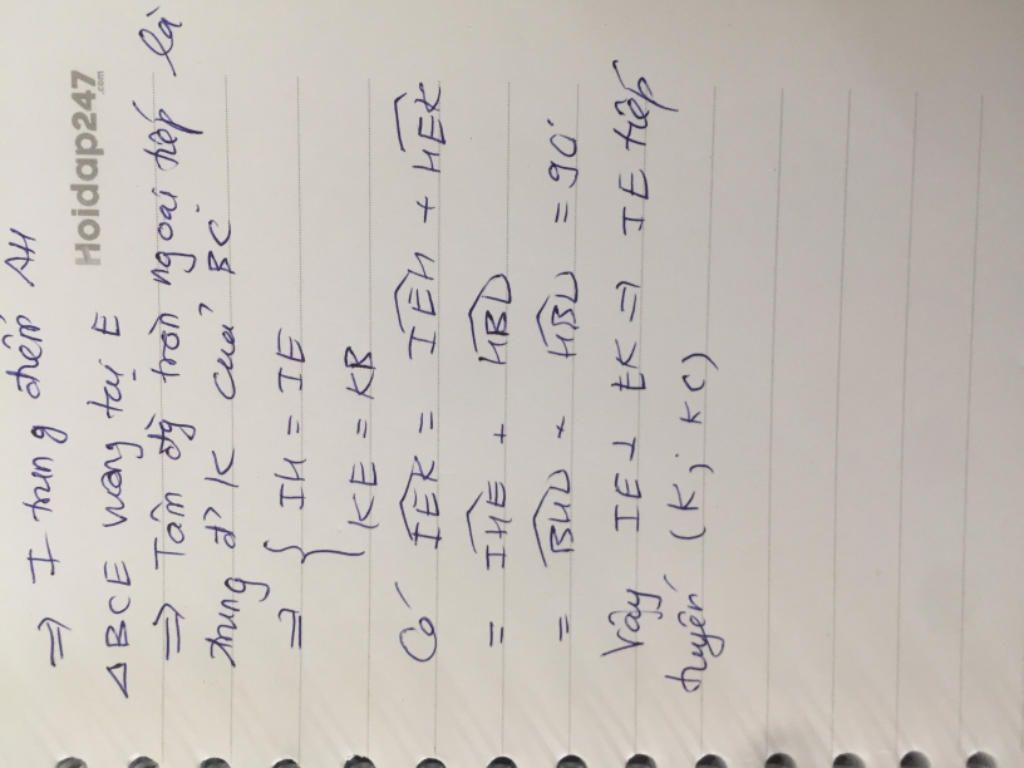 ⇒ I trung điểm AH
Hoidap247.com
ΔBCE vuông tại E
⇒ Tâm đg tròn ngoại tiếp là
trung đ' K của BC
⇒ { IH = IE
KE = KB
Có \widehat{IEK} = \widehat{IEH} + \widehat{HEK}
= \widehat{IHE} + \widehat{HBD}
= \widehat{BHD} + \widehat{HBD} = 90°
Vậy IE ⊥ EK ⇒ IE tiếp
tuyến (K; KC)